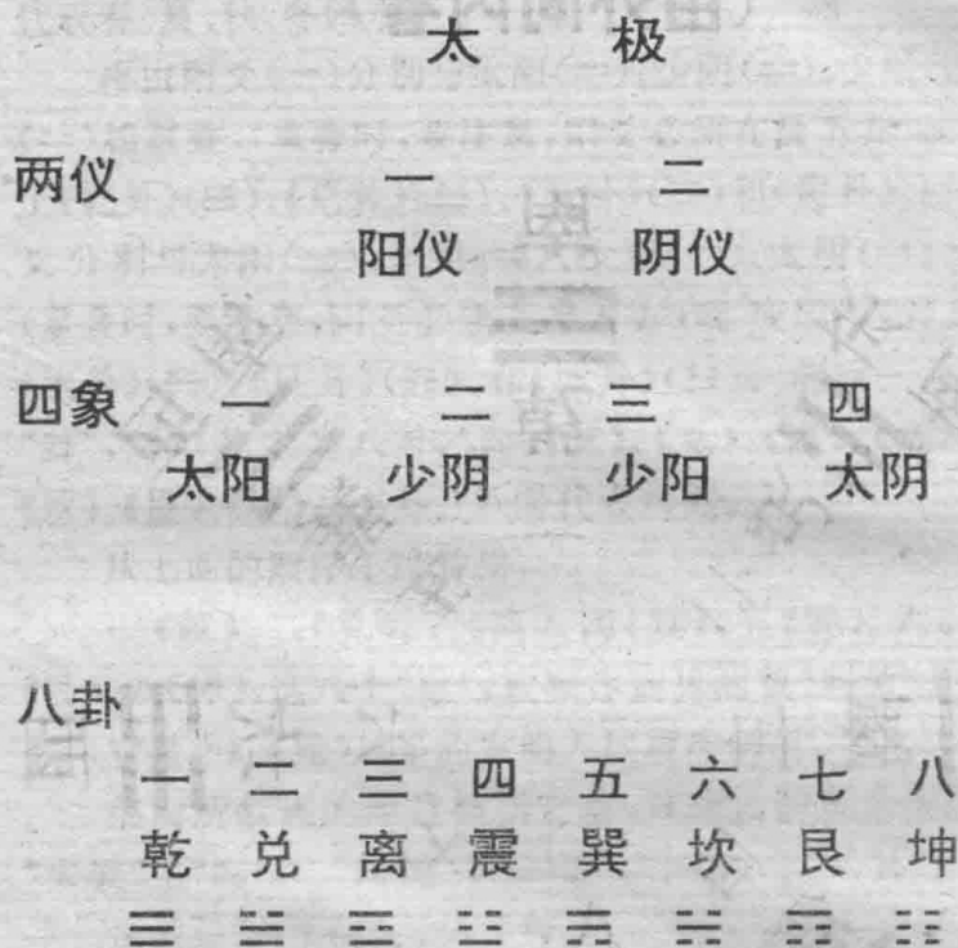 太 极
两仪 一 二
阳仪 阴仪
四象 一 二 三 四
太阳 少阴 少阳 太阴
八卦
一 二 三 四 五 六 七 八
乾 兑 离 震 巽 坎 艮 坤
☰ ☱ ☲ ☳ ☴ ☵ ☶ ☷